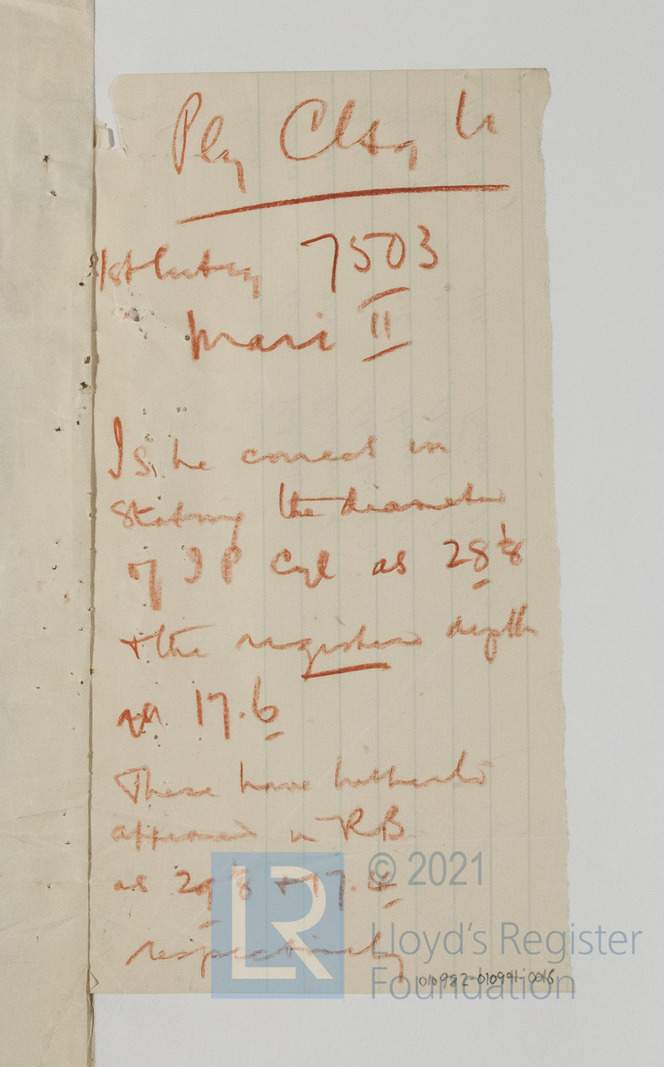 Ply
7503
II
Is he correct in
stating the diameter
of I P Cyl as 28 1/8
+ the registered depth
as 17.6
These have hitherto
appeared in RB
as 29 1/8 + 17.
respectively
LR
© 2021
Lloyd's Register
Foundation
010992-010991-0016